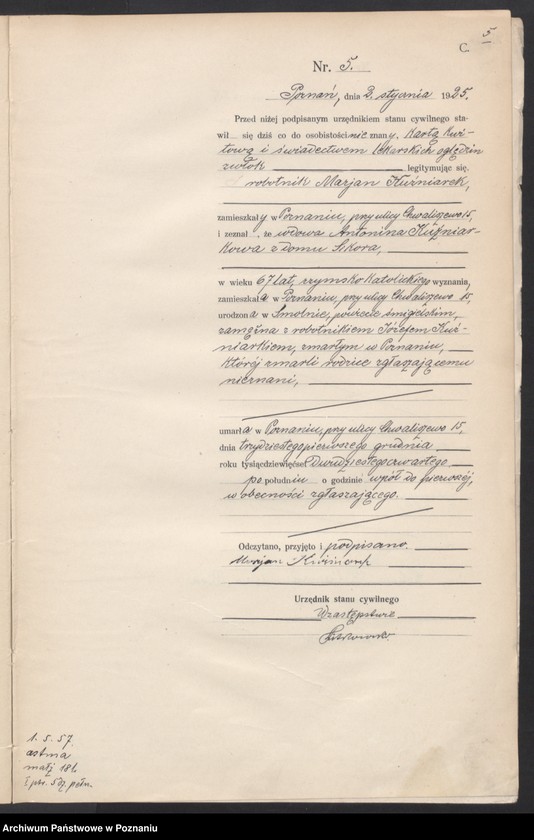 5
C.
Nr. 5.
Poznań, dnia 2. stycznia 1925.
Przed niżej podpisanym urzędnikiem stanu cywilnego sta-
wił się dziś co do osobistości nie znany, Kartą Kwi-
tową i świadectwem lekarskich oględzin
zwłok legitymując się.
robotnik Marjan Kuźniarek,
zamieszkały w Poznaniu, przy ulicy Chwaliszewo 15,
i zeznał, że wdowa Antonina Kuźniar-
kowa z domu Sikora,
w wieku 67 lat, rzymsko katolickiego wyznania,
zamieszkała w Poznaniu, przy ulicy Chwaliszewo 15,
urodzona w Smolnie, powiecie śmigielskim,
zamężna z robotnikiem Józefem Kuź-
niarkiem, zmarłym w Poznaniu,
której zmarli rodzice zgłaszającemu
nieznani,
umarła w Poznaniu, przy ulicy Chwaliszewo 15,
dnia trzydziestego pierwszego grudnia
roku tysiącdziewięćset dwudziestego czwartego
po południu o godzinie wpół do pierwszej,
w obecności zgłaszającego.
Odczytano, przyjęto i podpisano.
Marjan Kuźniarek
Urzędnik stanu cywilnego
W zastępstwie
1. 5. 57.
astma
małż 18 l.
5 dz. pełn.
Archiwum Państwowe w Poznaniu